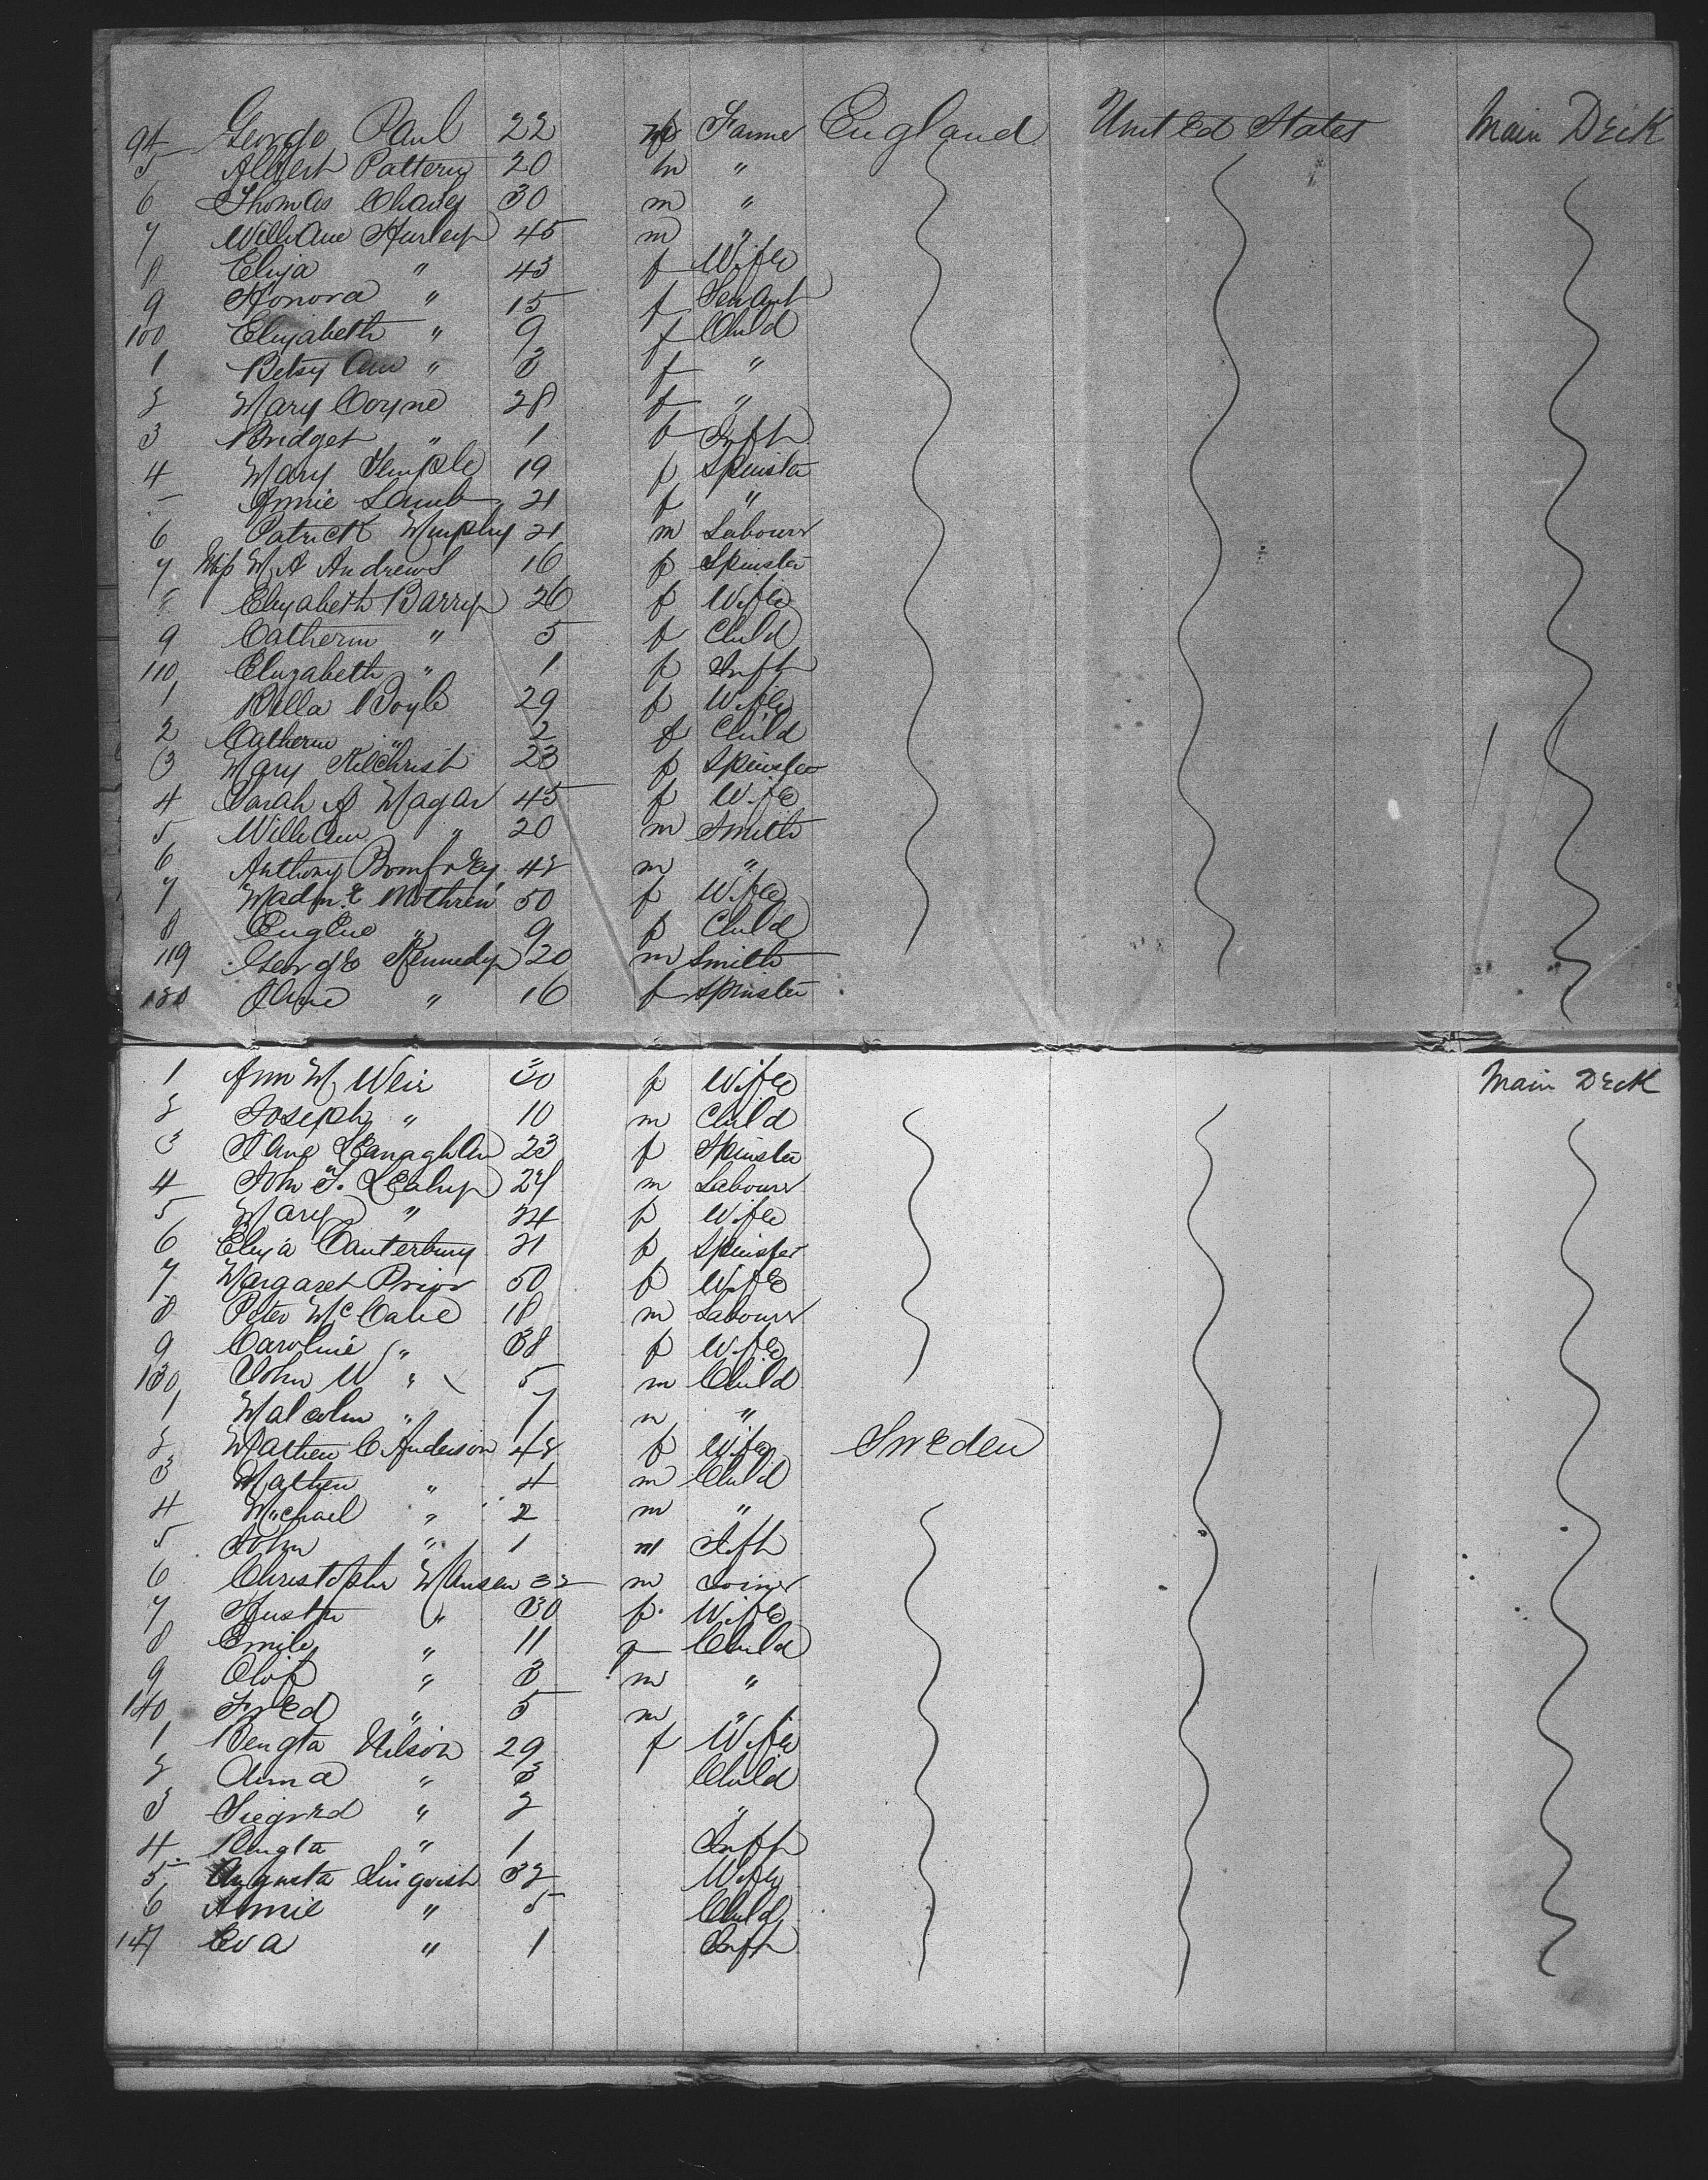 94 George Paul 22 m Farmer England United States Main Deck
5 Albert Pattern 20 m "
6 Thomas 30 m "
7 William Hurley 45 m "
8 Eliza " 43 f Wife
9 Honora " 15 f Servant
100 Elizabeth " 9 f Child
1 Betsy Ann " 3 f "
2 Mary Coyne 28 f "
3 Bridget " 1 f Inft
4 Mary Temple 19 f Spinster
5 Annie Lamb 21 f "
6 Patrick Murphy 21 m Labourr
7 Miss M A Andrews 16 f Spinster
8 Elizabeth Barry 26 f Wife
9 Catherin " 5 f Child
110 Elizabeth " 1 f Inft
1 Bella Boyle 29 f Wife
2 Catherin " 2 f Child
3 Mary Kilchrist 23 f Spinster
4 Sarah A Magar 45 f Wife
5 William " 20 m Smith
6 Anthony 42 m "
7 Madm E Mothren 50 f Wife
8 Eugene " 9 f Child
119 George Kennedy 20 m Smith
120 Jane " 16 f Spinster
1 Ann M Weir 30 f Wife Main Deck
2 Joseph " 10 m Child
3 Jane 23 f Spinster
4 John F. Leahy 24 m Labourr
5 Mary " 24 f Wife
6 Eliza Canterbury 21 f Spinster
7 Margaret Prior 50 f Wife
8 Peter McCabe 18 m Labourr
9 Caroline " 38 f Wife
130 John W " 5 m Child
1 Malcolm " 7 m "
2 Mathew C Anderson 42 f Wife Sweden
3 Mathew " 4 m Child
4 Michael " 2 m "
5 John " 1 m Inft
6 Christopher 32 m Joiner
7 " 30 f Wife
8 Emile " 11 f Child
9 Olof " 3 m "
140 Fred " 5 m "
1 Bengta Nilson 29 f Wife
2 Anna " 3 Child
3 Siegred " 2 "
4 Bengta " 1 Inft
5 Augusta Linqvist 32 Wife
6 Annie " 5 Child
147 Eva " 1 Inft